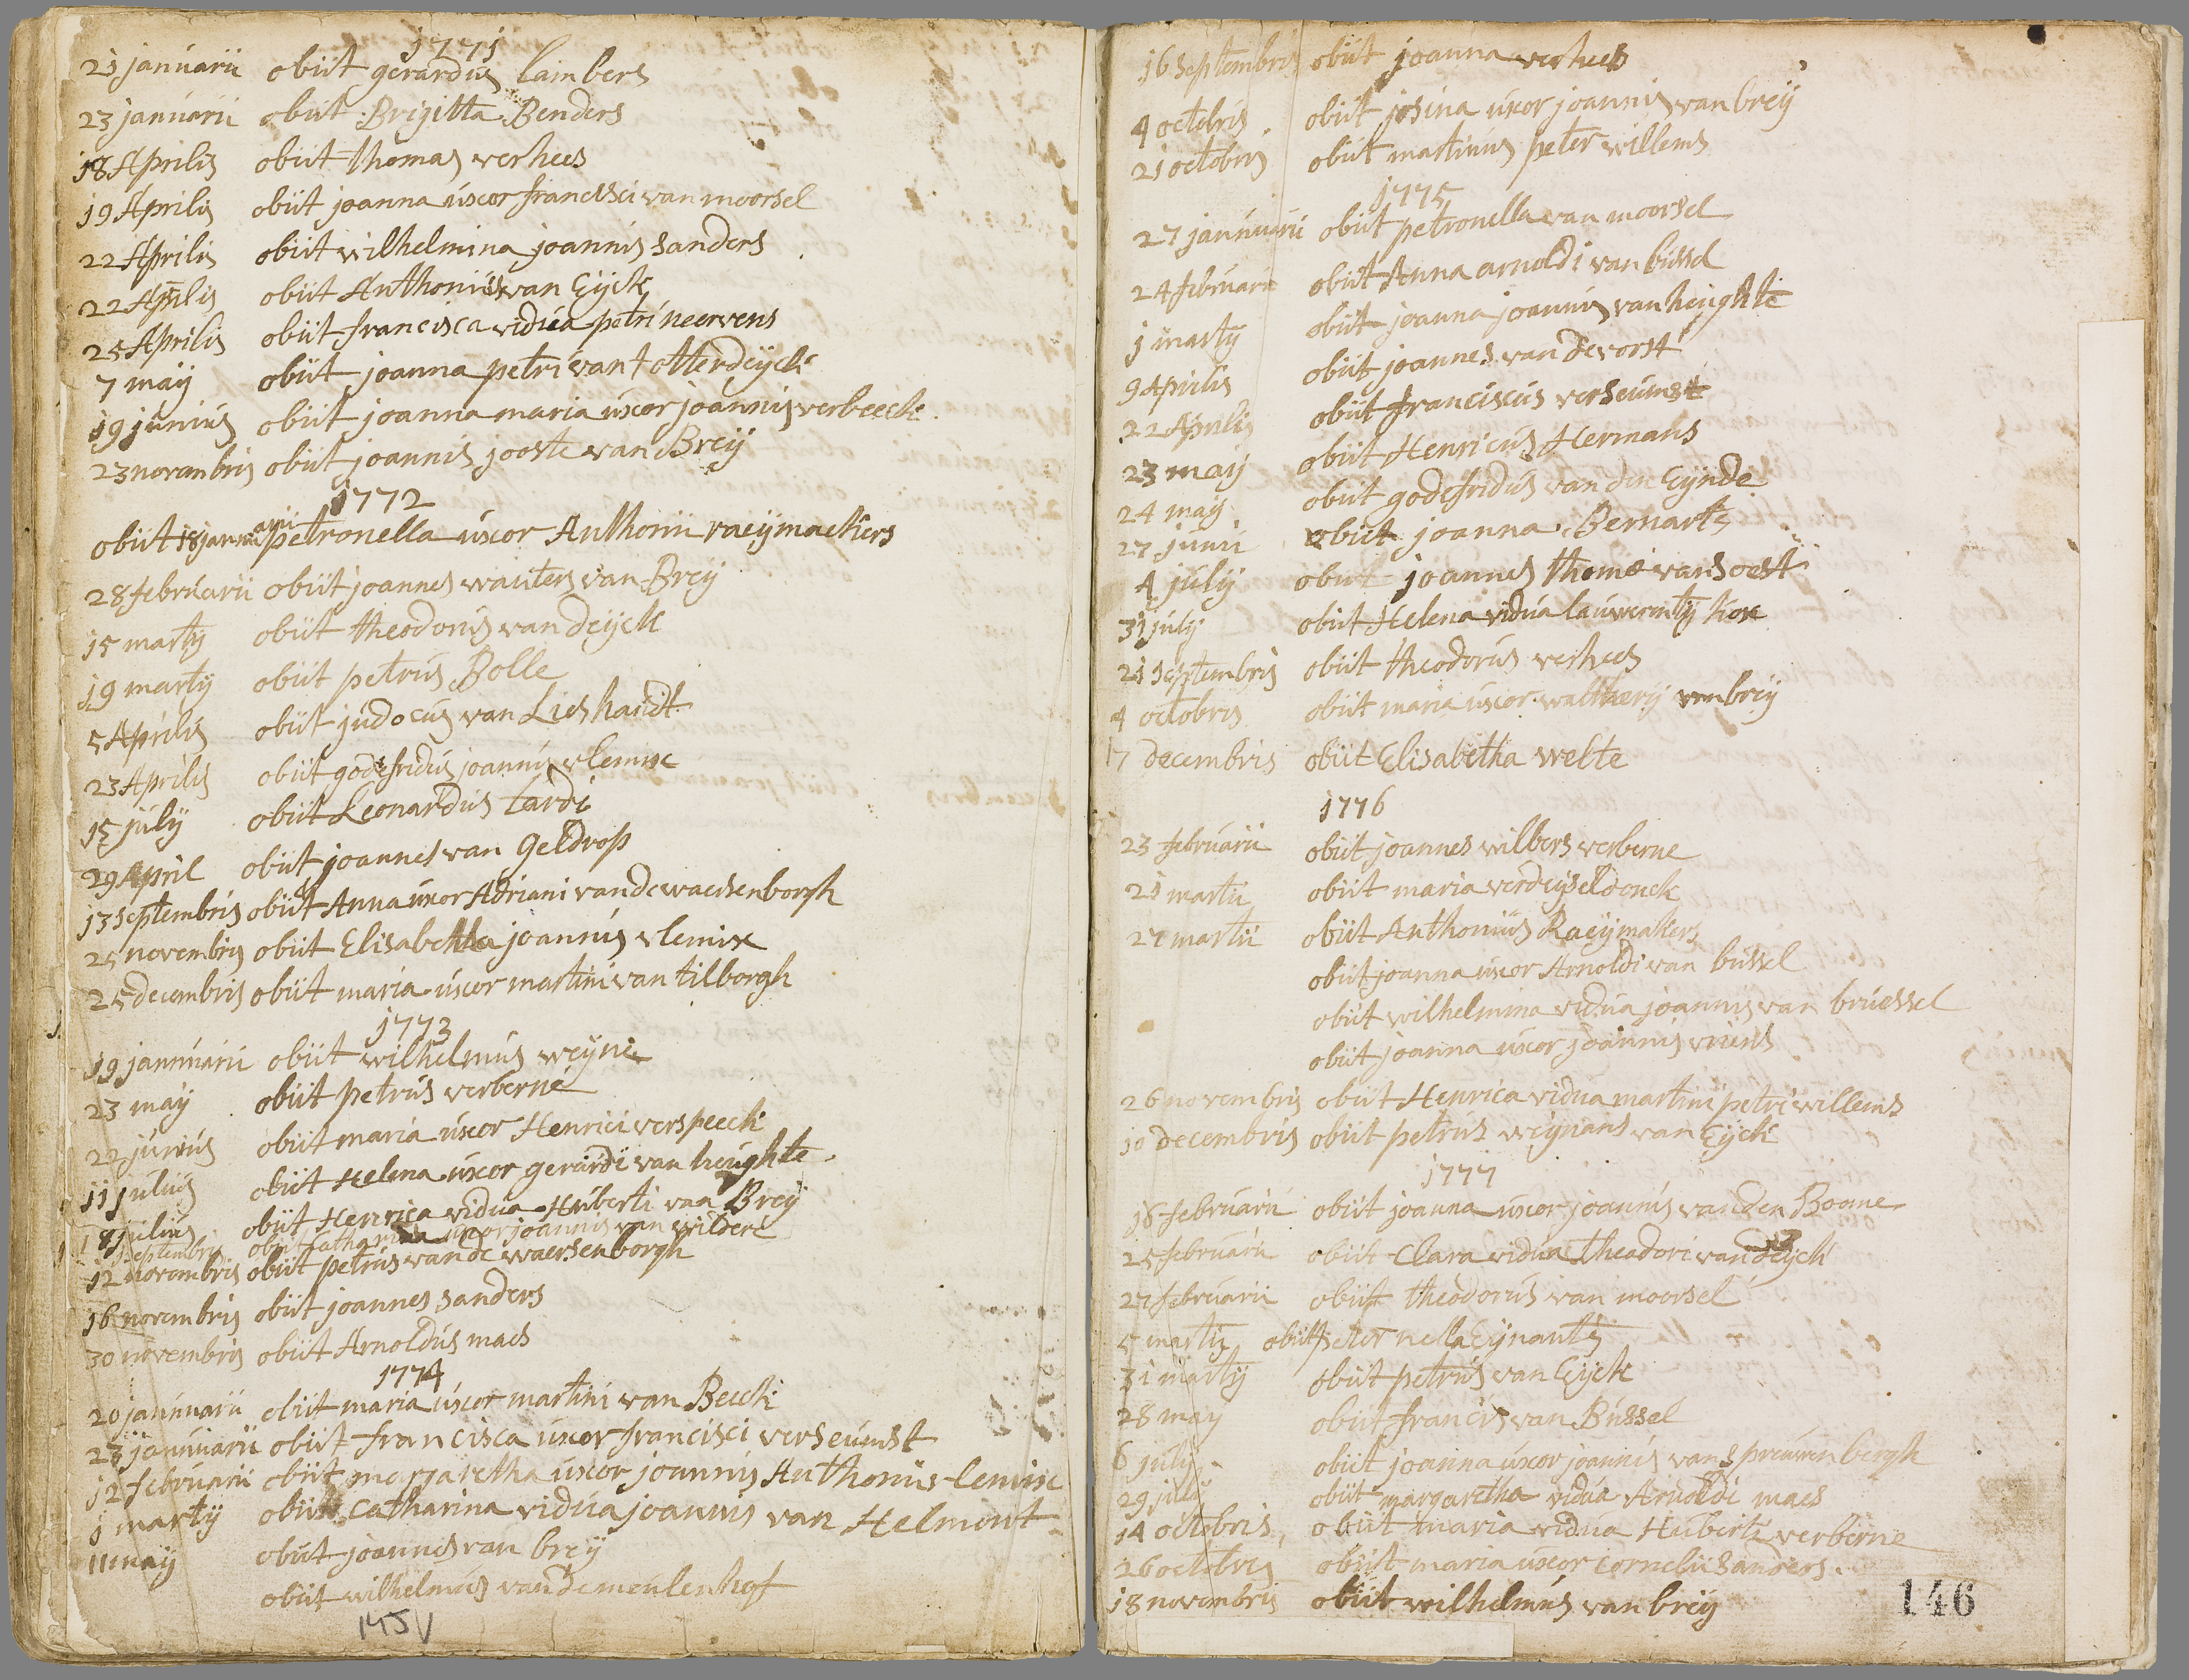 1771
21 januarii obiit gerardus Lambers
23 januarii obiit Brigitta Benders
18 Aprilis obiit thomas verhees
19 Aprilis obiit joanna uxor francisci van moorsel
22 Aprilis obiit wilhelmina joannis sanders
22 Aprilis obiit Anthonius van Eijck
25 Aprilis obiit francisca vidua petri neervens
7 maij obiit joanna petri van t otterdeijck
19 junius obiit joanna maria uxor joannis verbeeck
23 novembris obiit joannis jooste van Breij
1772
obiit 18 januarii petronella uxor Anthonii raeijmackers
28 februarii obiit joannes wauters van Breij
15 martij obiit theodorus van deijck
19 martij obiit petrus Bolle
5 Aprilis obiit judocus van Lieshaudt
23 Aprilis obiit godefridus joannis vlemix
15 julij obiit Leonardus tardi
29 April obiit joannes van geldrop
13 septembris obiit Anna uxor Adriani van de waersenborgh
25 novembris obiit Elisabetha joannis vlemix
25 decembris obiit maria uxor martini van tilborgh
1773
19 januarii obiit wilhelmus weijne
23 maij obiit petrus verberne
22 junius obiit maria uxor Henrici verspeeck
11 julius obiit Helena uxor gerardi van heughte
18 julius obiit Henrica vidua Huberti van Breij
septembris obiit Catharina uxor joannis van wildere
12 novembris obiit petrus van de waersenborgh
16 novembris obiit joannes sanders
30 novembris obiit Arnoldus maes
1774
20 januarii obiit maria uxor martini van Beeck
23 januarii obiit francisca uxor francisci verseumst
12 februarii obiit margaretha uxor joannis Anthonius lemix
1 martij obiit catharina vidua joannis van Helmont
11 maij obiit joannes van breij
obiit wilhelmus van de meulenhof
145V
16 septembris obiit joanna verhees
4 octobris obiit josina uxor joannis van breij
21 octobris obiit martinus peter willems
1775
27 januarii obiit petronella van moorsel
24 februarii obiit Anna arnoldi van bussel
1 martij obiit joanna joannis van heughte
9 Aprilis obiit joannes van de vorst
22 Aprilis obiit franciscus verseumst
23 maij obiit Henricus Hermans
24 maij obiit godefridus van den Eijnde
27 junii obiit joanna Bernarts
4 julij obiit joannes thomæ van soest
31 julij obiit Helena vidua
21 septembris obiit theodorus verhees
4 octobris obiit maria uxor waltherij van breij
17 decembris obiit Elisabetha welte
1776
23 februarii obiit joannes wilbers verberne
21 martii obiit maria verdeijseldonck
27 martii obiit Anthonius Raeijmakers
obiit joanna uxor Arnoldi van bussel
obiit wilhelmina vidua joannis van bruessel
obiit joanna uxor joannis vriens
26 novembris obiit Henrica vidua martini petri willems
10 decembris obiit petrus weijnans van Eijck
1777
18 februarii obiit joanna uxor joannis van den Boome
25 februarii obiit Clara vidua theodori van deijck
27 februarii obiit theodorus van moorsel
5 martij obiit peternella Eijnants
31 martij obiit petrus van Eijck
28 may obiit francis van Bussel
6 julij obiit joanna uxor joannis van spreuwenbergh
29 julij obiit margaretha vidua Arnoldi maes
14 octobris obiit maria vidua Huberti verberne
26 octobris obiit maria uxor cornelii sanders
18 novembris obiit wilhelmus van breij
146